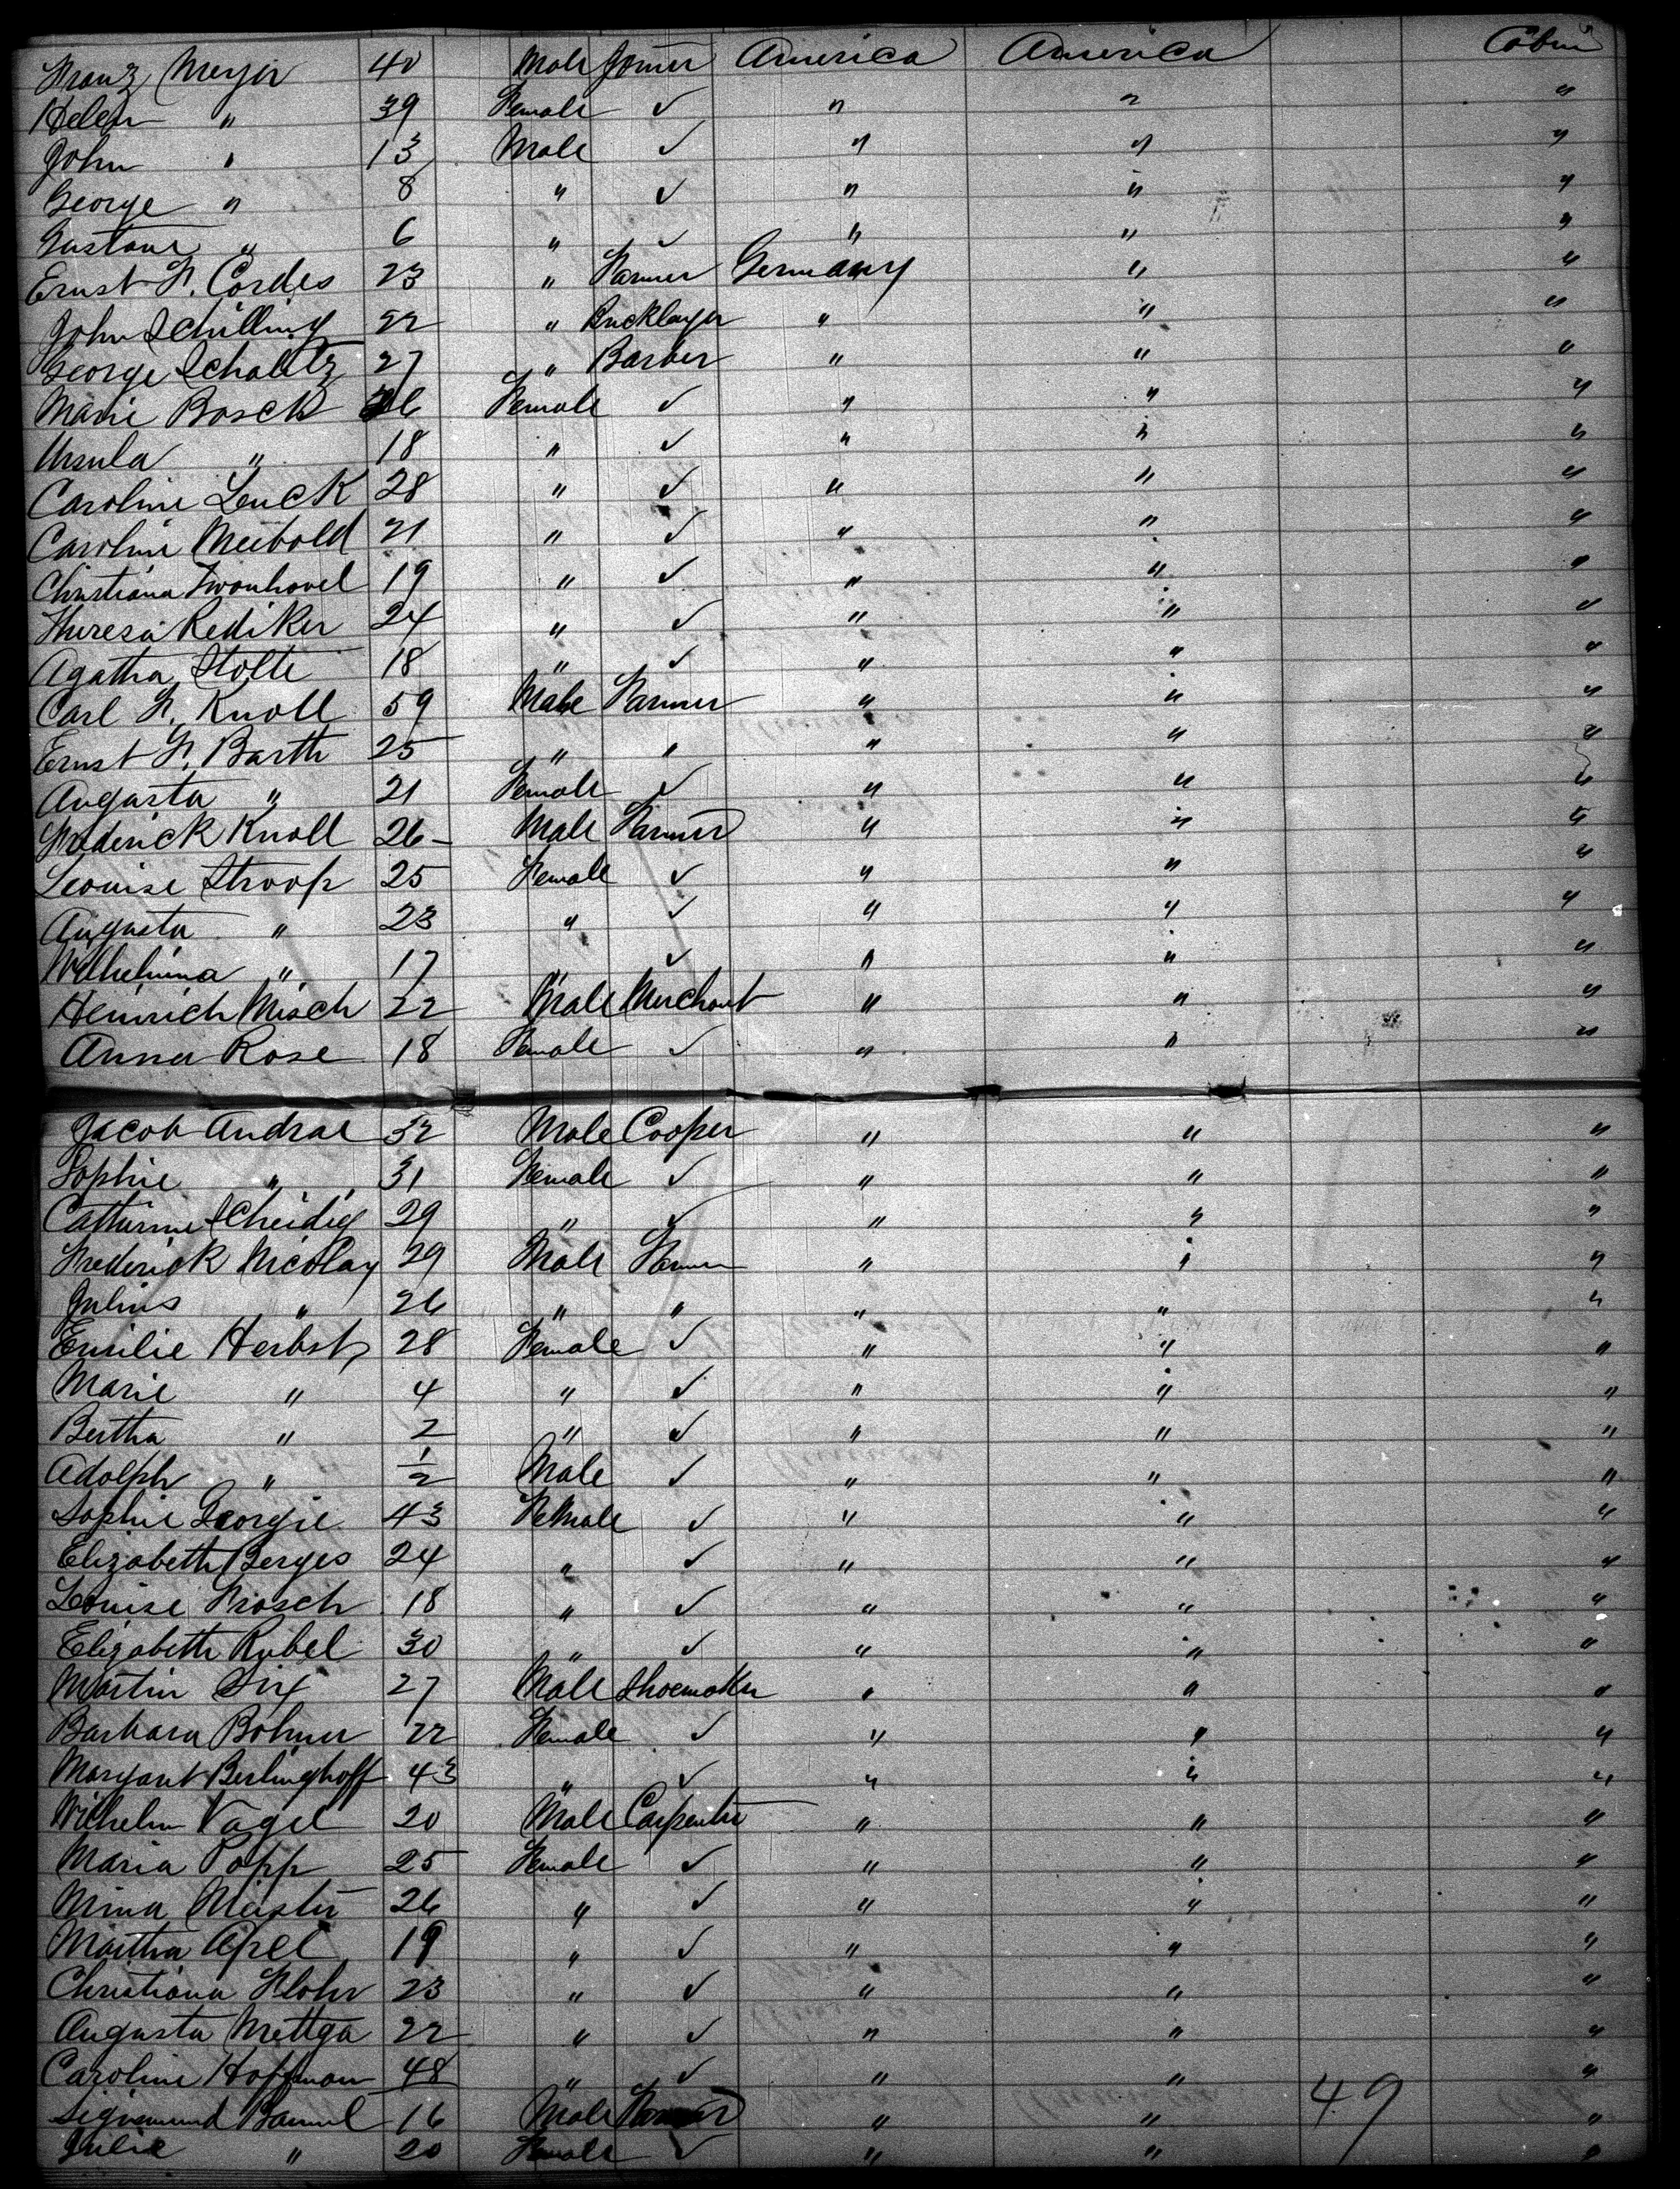 Franz Meyer 40 Male Joiner America America Cabin
Helen " 39 Female ✓ " " "
John " 13 Male ✓ " " "
George " 8 " ✓ " " "
Gustave " 6 " ✓ " " "
Ernst F. Cordes 23 " Farmer Germany " "
John Schilling 22 " Bricklayer " " "
George Schabtz 27 " Barber " " "
Marie Bosck 26 Female ✓ " " "
Ursula " 18 " ✓ " " "
Caroline Lenck 28 " ✓ " " "
Caroline Meibold 21 " ✓ " " "
Christiana Zwonhovel 19 " ✓ " " "
Theresa Rediker 24 " ✓ " " "
Agatha Stolte 18 " ✓ " " "
Carl F. Knoll 59 Male Farmer " " "
Ernst F. Barth 25 " " " " "
Augusta " 21 Female ✓ " " "
Frederick Knoll 26 Male Farmer " " "
Leouise Stroop 25 Female ✓ " " "
Augusta " 23 " ✓ " " "
Wilhelmina " 17 " ✓ " " "
Heinrich Misch 22 Male Merchant " " "
Anna Rose 18 Female ✓ " " "
Jacob Andrae 32 Male Cooper " " "
Sophie " 31 Female ✓ " " "
Catherine Scheidig 29 " ✓ " " "
Frederick Nicolay 29 Male Farmer " " "
Julius " 26 " " " " "
Emilie Herbst 28 Female ✓ " " "
Marie " 4 " ✓ " " "
Bertha " 2 " ✓ " " "
Adolph " 1/2 Male ✓ " " "
Sophie Georgie 43 Female ✓ " " "
Elizabeth Berges 24 " ✓ " " "
Louise Frosch 18 " ✓ " " "
Elizabeth Rubel 30 " ✓ " " "
Martin Six 27 Male Shoemaker " " "
Barbara Bohmer 22 Female ✓ " " "
Margant Berlinghoff 43 " ✓ " " "
Wilhelm Vogel 20 Male Carpenter " " "
Maria Popp 25 Female ✓ " " "
Mina Meister 26 " ✓ " " "
Martha Apel 19 " ✓ " " "
Christiana Flohr 23 " ✓ " " "
Augusta Mettga 22 " ✓ " " "
Caroline Hoffman 48 " ✓ " " "
Sigismund Bamul 16 Male Farmer " " 49 "
Julie " 20 Female ✓ " " "